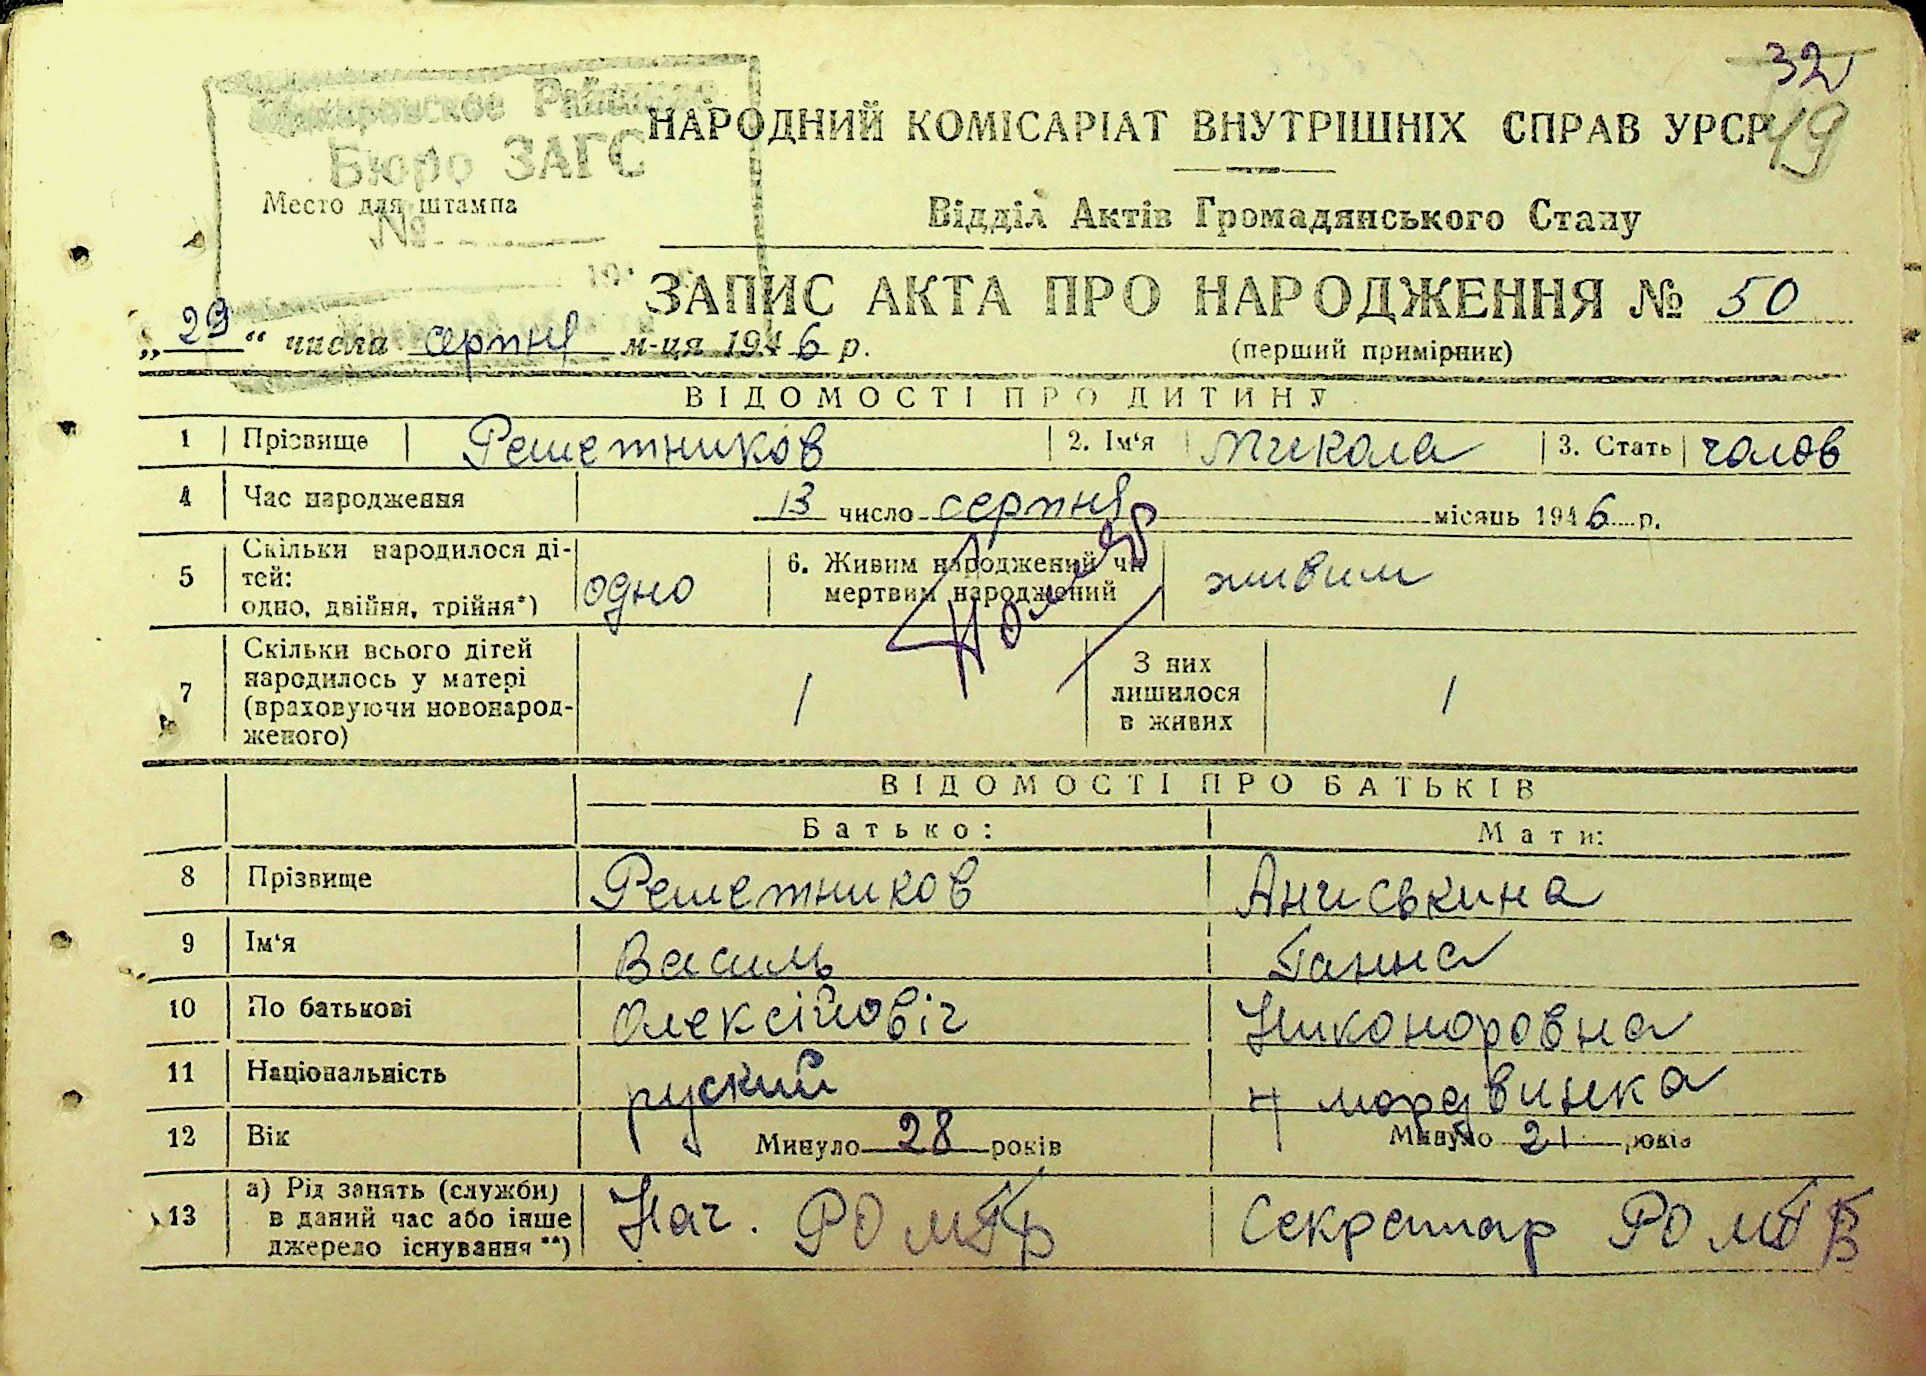 32
49
Районное
Бюро ЗАГС
Место для штампа
№
НАРОДНИЙ КОМІСАРІАТ ВНУТРІШНІХ СПРАВ УРСР
Відділ Актів Громадянського Стану
ЗАПИС АКТА ПРО НАРОДЖЕННЯ № 50
„29“ числа серпня м-ця 1946 р.
(перший примірник)
ВІДОМОСТІ ПРО ДИТИНУ
1 Прізвище Решетников 2. Ім'я Микола 3. Стать чолов
4 Час народження 13 число серпня місяць 1946 р.
5 Скільки народилося ді-
тей:
одно, двійня, трійня*) одно 6. Живим народжений чи
мертвим народжений живим
7 Скільки всього дітей
народилось у матері
(враховуючи новонарод-
женого) 1 З них
лишилося
в живих 1
ВІДОМОСТІ ПРО БАТЬКІВ
Батько: Мати:
8 Прізвище Решетников Аниськина
9 Ім'я Василь Ганна
10 По батькові Олексійовіч Никоноровна
11 Національність руский мордвинка
12 Вік Минуло 28 років Минуло 21 років
13 а) Рід занять (служби)
в даний час або інше
джерело існування **) Нач. РО Секретар РО